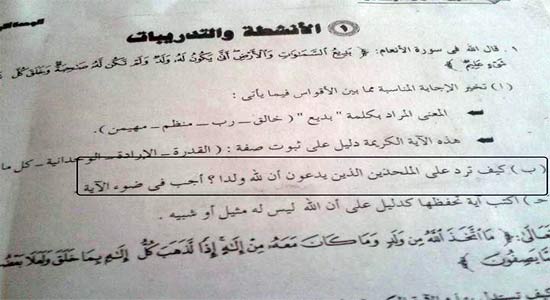 ١ الأنشطة والتدريبات
١ـ قال الله فى سورة الأنعام: ﴿ بَدِيعُ السَّمَاوَاتِ وَالْأَرْضِ أَنَّىٰ يَكُونُ لَهُ وَلَدٌ وَلَمْ تَكُن لَّهُ صَاحِبَةٌ وَخَلَقَ كُلَّ
عَلِيمٌ ﴾
(١) تخير الإجابة المناسبة مما بين الأقواس فيما يأتى :
المعنى المراد بكلمة " بديع " ( خالق ـ رب ـ منظم ـ مهيمن ).
هذه الآية الكريمة دليل على ثبوت صفة : ( القدرة ـ الإرادة ـ الوحدانية ـ كل ما
(ب) كيف ترد على الملحدين الذين يدعون أن لله ولدا ؟ أجب فى ضوء الآية
حـ) اكتب آية تحفظها كدليل على أن الله ليس له مثيل أو شبيه .
تعالى: ﴿ مَا اتَّخَذَ اللَّهُ مِن وَلَدٍ وَمَا كَانَ مَعَهُ مِنْ إِلَٰهٍ إِذًا لَّذَهَبَ كُلُّ إِلَٰهٍ بِمَا خَلَقَ وَلَعَلَا بَعْضُ
يَصِفُونَ ﴾